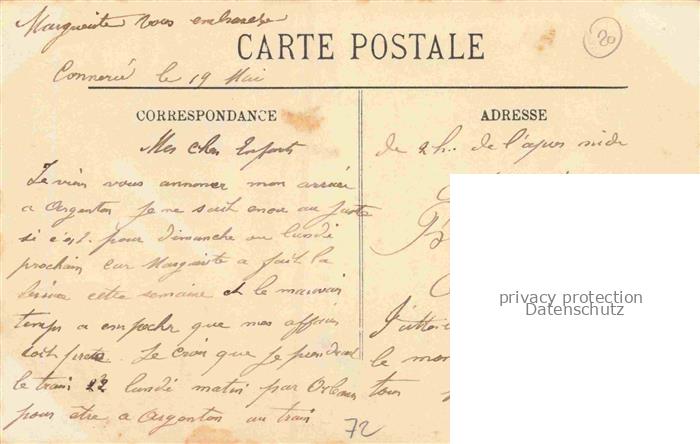 Marguerite vous embrasse
20
CARTE POSTALE
Connerré le 19 Mai
CORRESPONDANCE
ADRESSE
Mes cher Enfants
de 2 h. de l'apres midi
Je vien vous annoncer mon arrivée
a Argenton je ne sait encor au juste
si c'est pour dimanche ou lundi
prochain car Marguerite a fait la
lessive cette semaine et le mauvais
temps a empecher que mes affaires
soit prete. Je croix que je prendrai
le train 22 lundi matin par Orleans
pour etre a Argenton au train
privacy protection
Datenschutz
le
tous
72